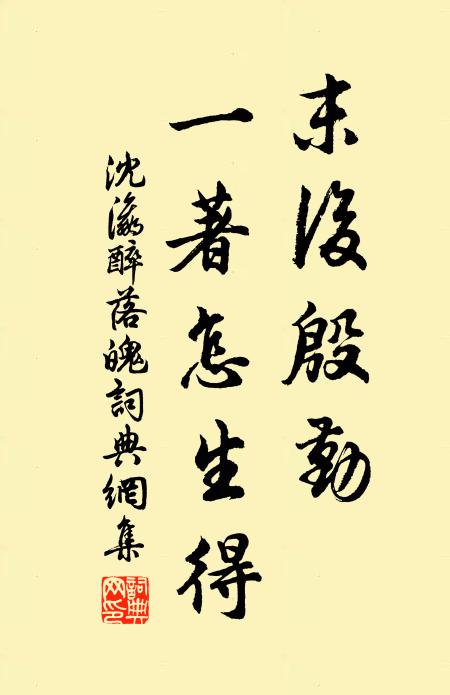 末後殷勤
一著怎生得
沈瀛醉落魄詞典網集
詞典网印